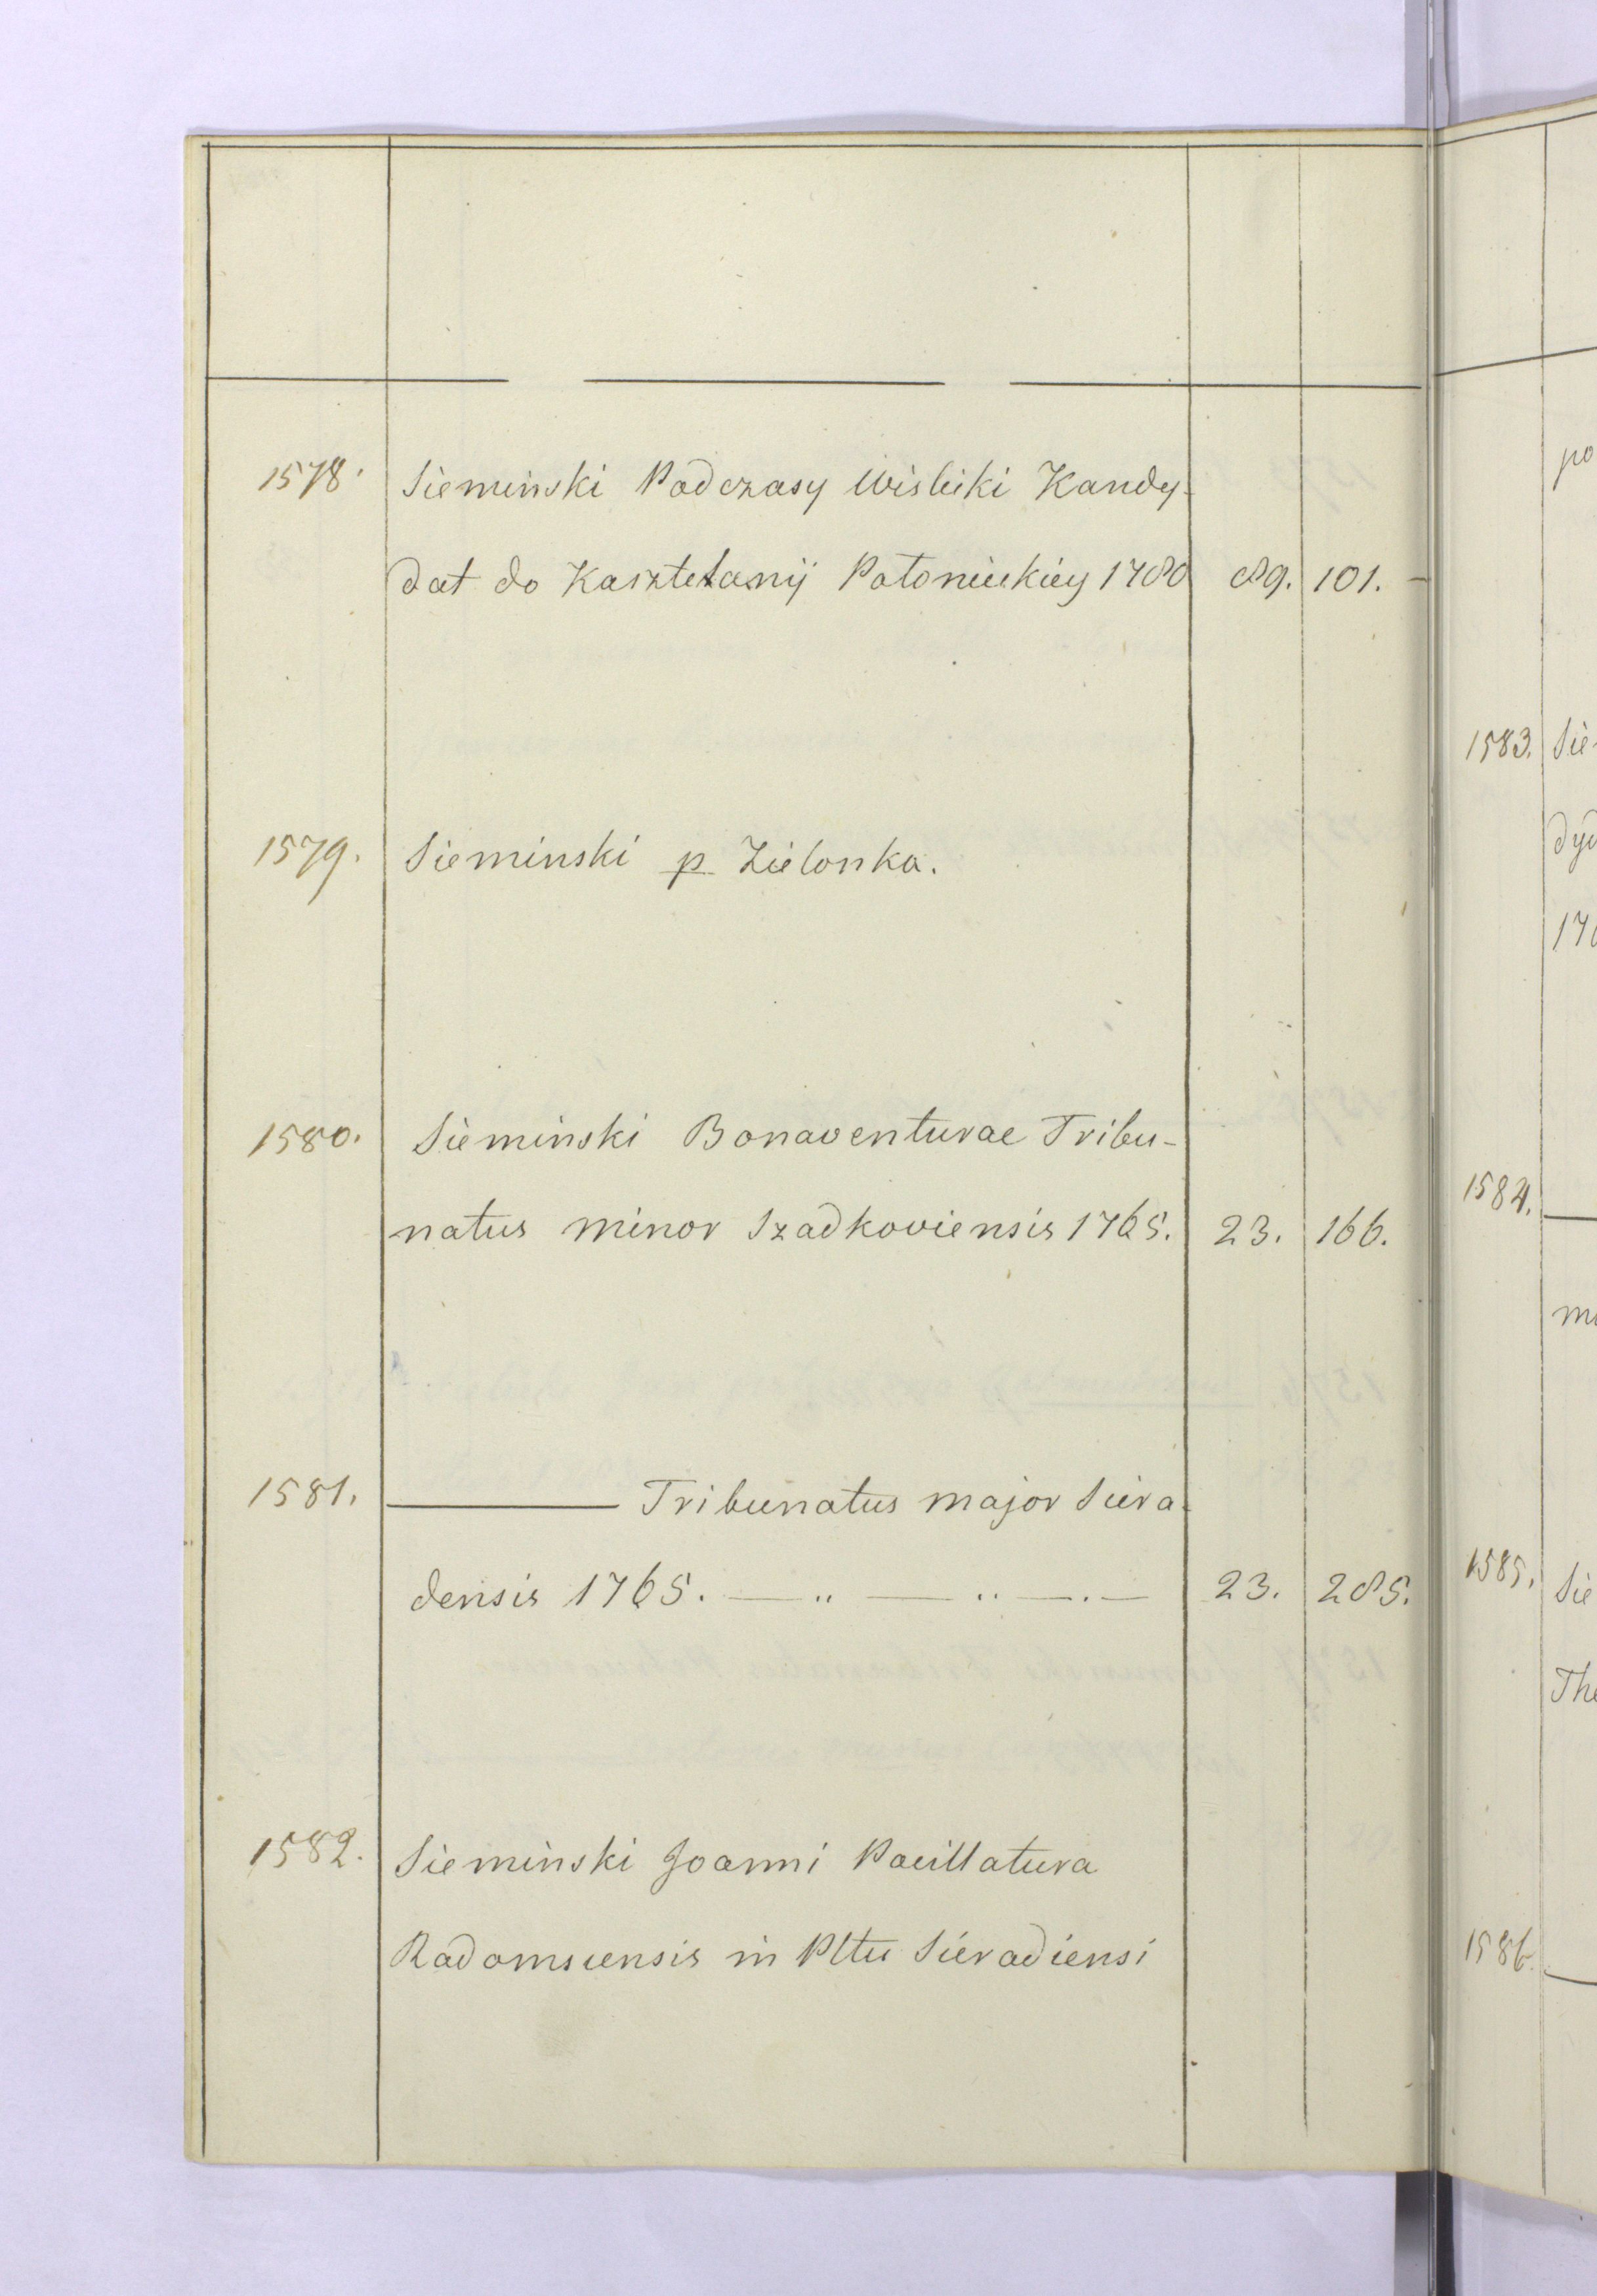 1578. Sieminski Podczasy Wislicki Kandy-
dat do Kasztelanij Połonieckiey 1780 89. 101.
1579. Sieminski p Zielonka.
1580. Sieminski Bonaventurae Tribu-
natus minor Szadkoviensis 1765. 23. 166.
1581. ——— Tribunatus major Siera-
densis 1765. — „ — „ — . — 23. 285.
1582. Sieminski Joanni Pocillatura
Radomscensis in Pltu Sieradiensi
po
1583. Sie
dyd
1584.
1585. Sie
The
1586.